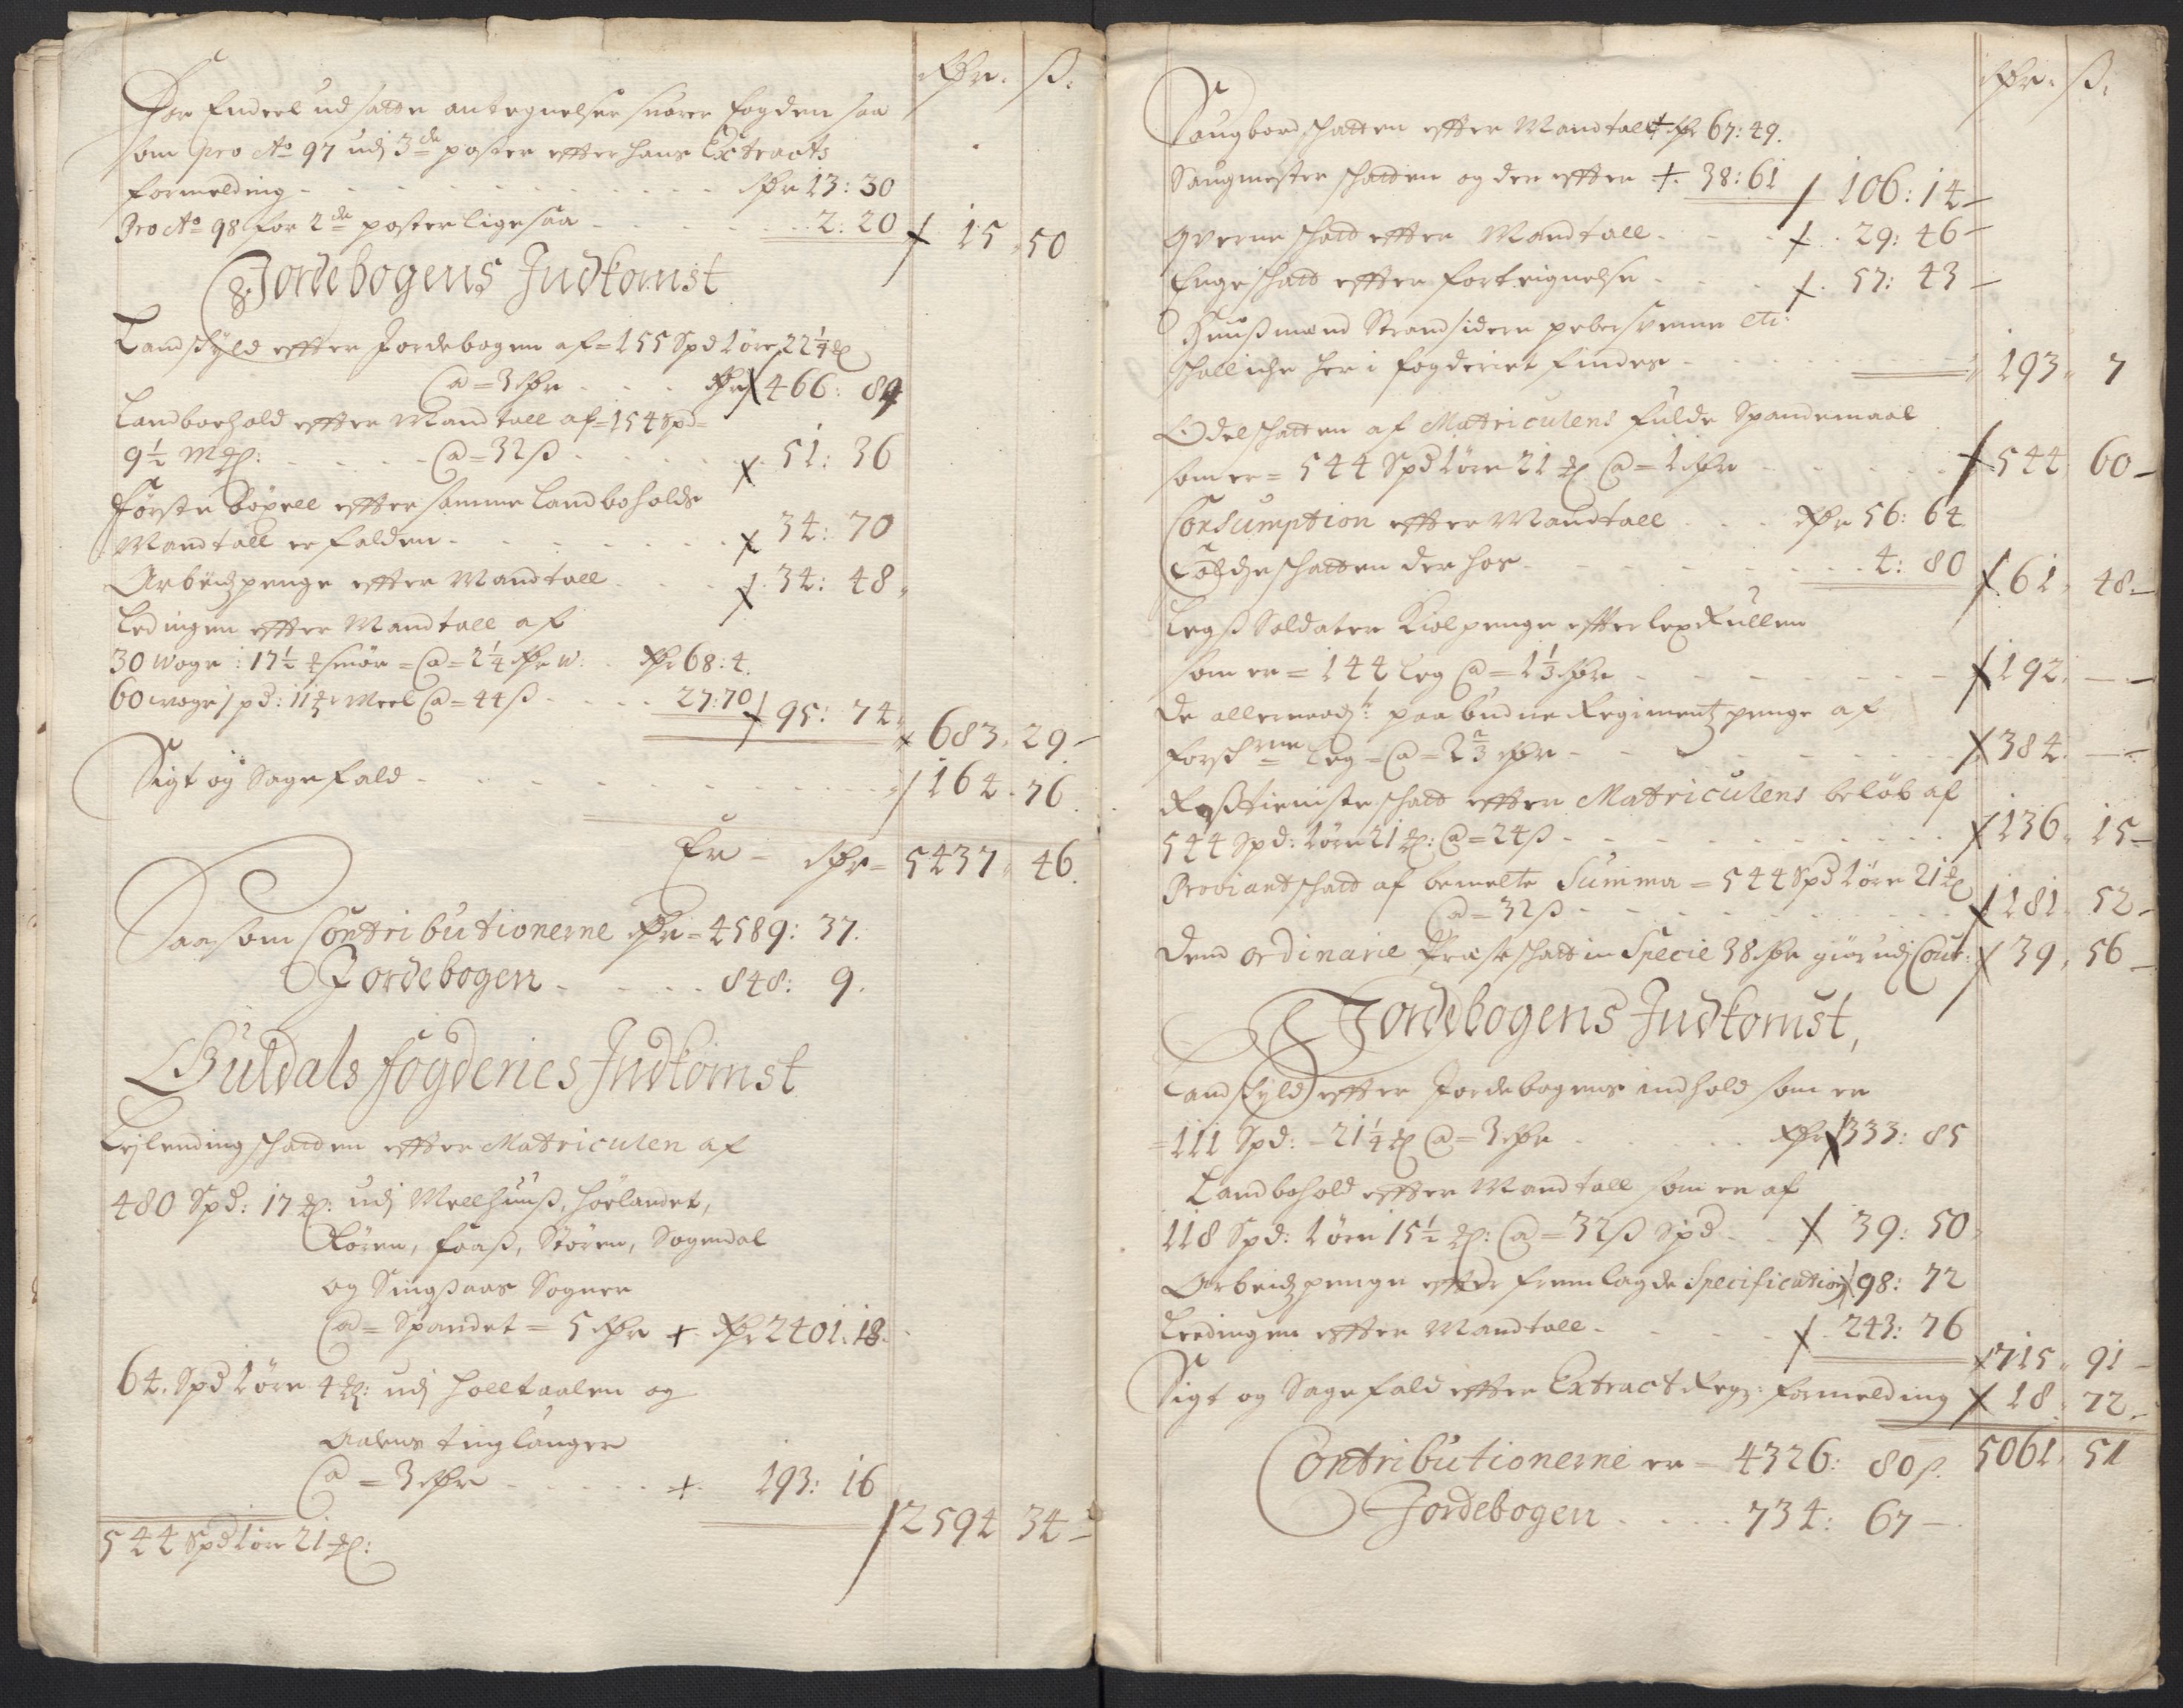 Rdr. ß.
For Endeel udsatte antegnelser svarer fogden saa
som pro Ao 97 udj 3de poster effter hans Extracts
formelding - - - Rdr 13: 30
Pro Ao 98 for 2de poster ligesaa - - - 2: 20 15 50
Jordebogens Indkomst
Landskyld effter Jordebogen af = 155 Spd 1 øre 22 1/4 mkl
@ = 3 Rdr - - - Rdr 466: 84
Landboehold effter Mandtall af = 154 Spd =
9 1/2 Mkl: - - - @ = 32 ß - - - 51: 36
Første bøxell effter samme Landboholds
Mandtall er falden - - - 34: 70
Arbeidzpenge effter Mandtall - - - 34: 48
Ledingen effter Mandtall af
30 Woge: 17 1/2 smör = @ = 2 1/4 Rdr W: Rdr 68: 4.
60 woge 1 pd: 11 Meel @ = 44 ß - - - 27: 70 95: 74 683. 29 -
Sigt og Sagefald - - - 164. 76.
Er - Rdr = 5437 46.
Saasom Contributionerne Rdr = 4589: 37.
Jordebogen - - - 848: 9.
Guldals fogderies Indkomst
Lejlending schatten effter Matriculen af
480 Spd: 17 mkl: udj Mellhuuß, Hörlandet,
Kören, Foaß, Stören, Sogndal
og Singsaas Sogner
@ = Spandet = 5 Rdr + Rdr 2401: 18.
64. Spd 1 øre 4 mkl: udj Holltaalen og
Aalens tinglauger
@ = 3 Rdr - - - + 193: 16
2594 34 -
544 Spd 1 øre 21 mkl:
Rdr. ß.
Saugbord schatten effter Mandtall + Rdr 67: 49.
Saugmester schatten og der effter + 38: 61 106: 14 -
Qverne schatt effter Mandtall - - - 29: 46 -
Enge schatt effter forteignelse - - - 57: 43 -
Huußmænd Strandsidere pebersvenne etc:
schall iche her i fogderiet findes - - - 193 7
Odelschatten af Matriculens fulde Spandemaal
som er = 544 Spd 1 øre 21 mkl @ = 1 Rdr - - - 544 60 -
Consumption effter Mandtall - - Rdr 56: 64.
Foldzeschatten der hos - - - 4: 80 61. 48. -
Legß Soldater Kiolpenge effter legs Rullen
som er = 144 Leg @ = 1 1/3 Rdr - - - 192. -
De allernaadt: paabudne Regimentz penge af
forschrne Leg = @ = 2 2/3 Rdr - - - 384. -
Roßtienisteschatt effter Matriculens beløb af
544 Spd: 1 øre 21 mkl: @ = 24 ß - - - 136. 15 -
Proviantschatt af bemelte Summa = 544 Spd 1 øre 21 mkl
@ = 32 ß - - - 181 52 -
Dend ordinarie Præsteschatt in Specie 38 Rdr giør udj Cour: 39. 56 -
Jordebogens Indkomst,
Landskyld effter Jordebogens indhold som er
= 111 Spd: - 21 1/4 mkl @ = 3 Rdr - - - Rdr 333: 85
Landbohold effter Mandtall som er af
118 Spd: 1 øre 15 1/2 mkl: @ = 32 ß Spd - - 39: 50
Arbeidzpenge effter fremlagde Specification 98: 72
Leedingen effter Mandtall - - - 243: 76
715. 91 -
Sigt og Sagefald effter Extract Regs: formelding 18. 72 -
Contributionerne er = 4326: 80 ß. 5061. 51
Jordebogen - - - 734: 67 -